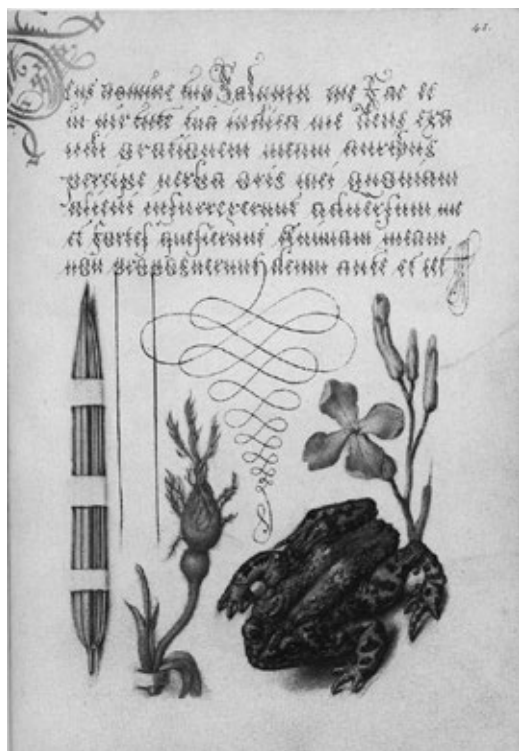 41.
Deus nomine tuo Saluum me Fac et
in virtute tua iudica me Deus exa
udi orationem meam auribus
percipe verba oris mei quoniam
alieni insurrexerunt aduersum me
et fortes quesierunt Animam meam
non proposuerunt deum ante et